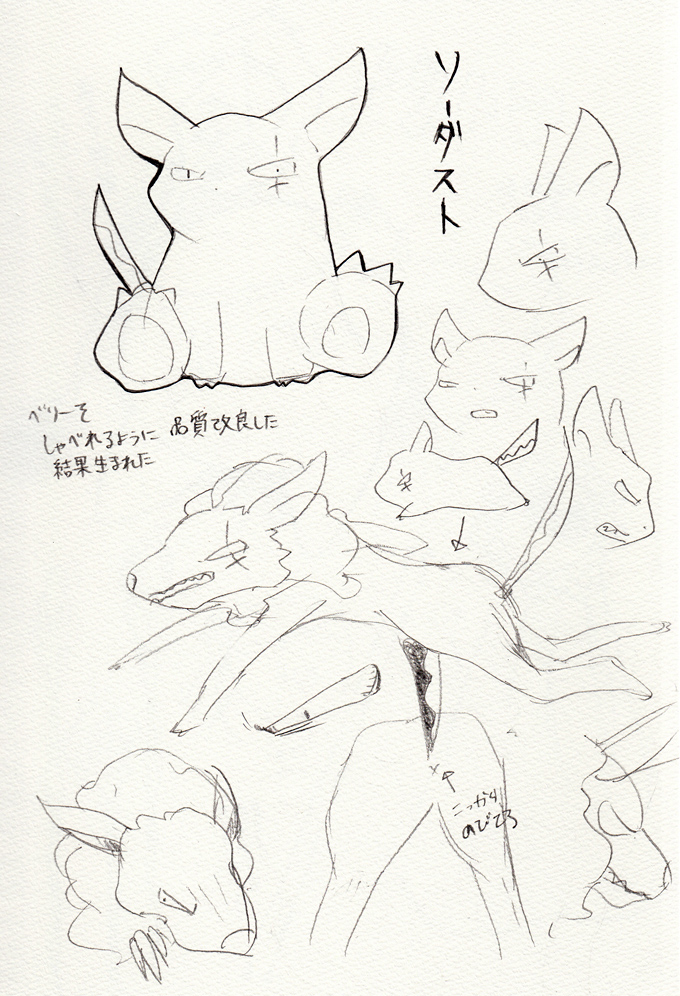 ソーダスト
ベリーを
しゃべれるように 品質改良した
結果生まれた
こっから
のびてる